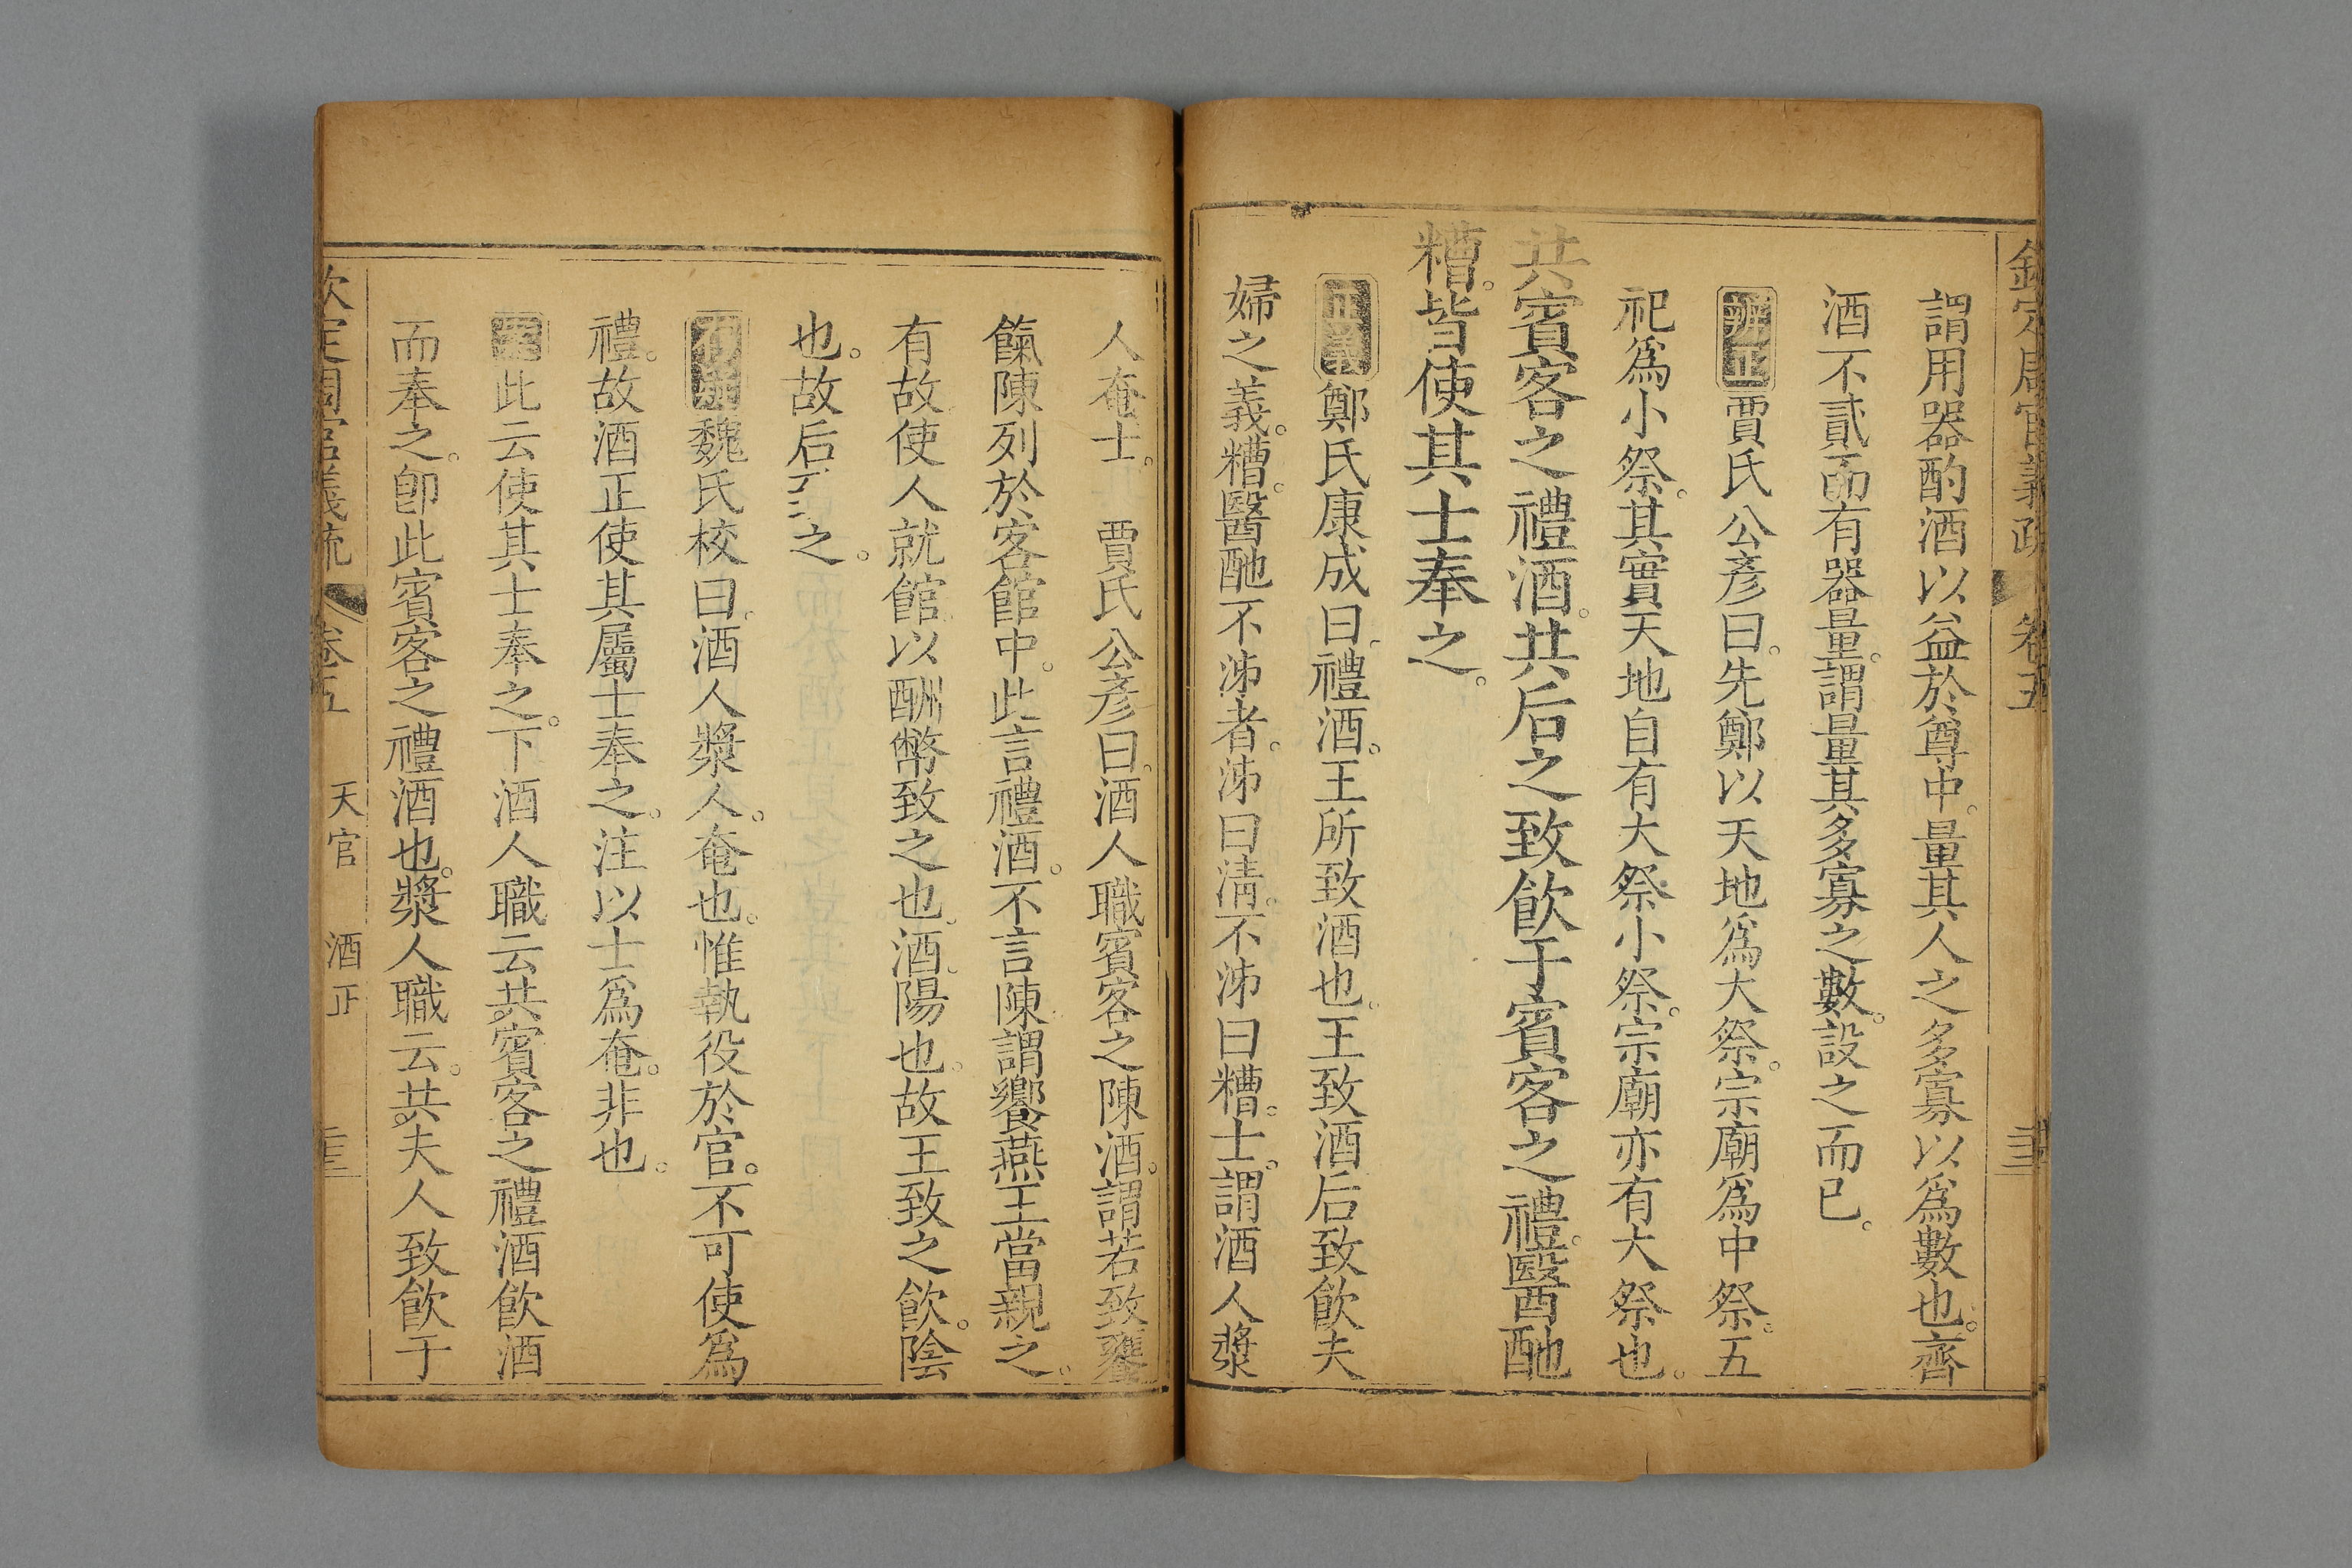 欽定周官義疏 卷五
謂用器酌酒以益於尊中。量其人之多寡以爲數也。齊
酒不貳而有器量。謂量其多寡之數。設之而已。
辨正賈氏公彥曰。先鄭以天地爲大祭。宗廟爲中祭。五
祀爲小祭。其實天地自有大祭小祭。宗廟亦有大祭也。
共賓客之禮酒。共后之致飮于賓客之禮。醫酏
糟。皆使其士奉之。
正義鄭氏康成曰。禮酒。王所致酒也。王致酒后致飮夫
婦之義。糟。醫酏不泲者。泲曰淸。不泲曰糟。士。謂酒人漿
人奄士。 賈氏公彥曰。酒人職賓客之陳酒。謂若致饔
餼陳列於客館中。此言禮酒。不言陳謂饗燕王當親之。
有故使人就館。以酬幣致之也。酒。陽也。故王致之飮。陰
也。故后 之。
存疑魏氏校曰。酒人漿人。奄也。惟執役於官。不可使爲
禮。故酒正使其屬士奉之。注以士爲奄。非也。
案此云使其士奉之。下酒人職云共賓客之禮酒飮酒
而奉之。卽此賓客之禮酒也。漿人職云。共夫人致飮于
欽定周官義疏 卷五 天官 酒正